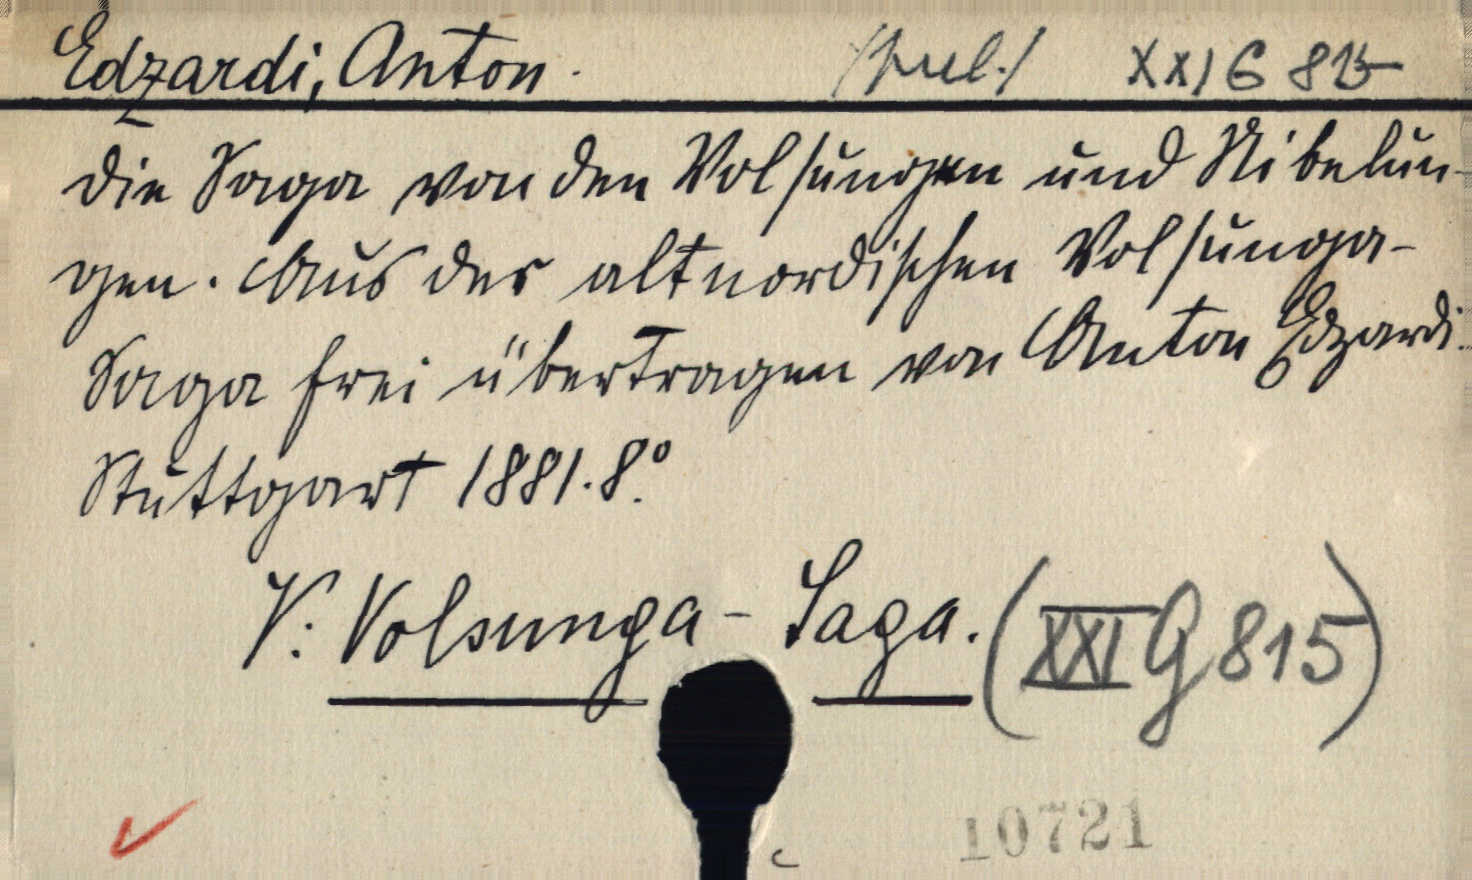 Edzardi, Anton. XXI G 815
Die Saga von den Volsungen und Nibelun-
gen. Aus der altnordischen Volsunga-
Saga frei übertragen von Anton Edzardi.
Stuttgart 1881. 8°.
V: Volsunga - Saga. (XXI G 815)
10721